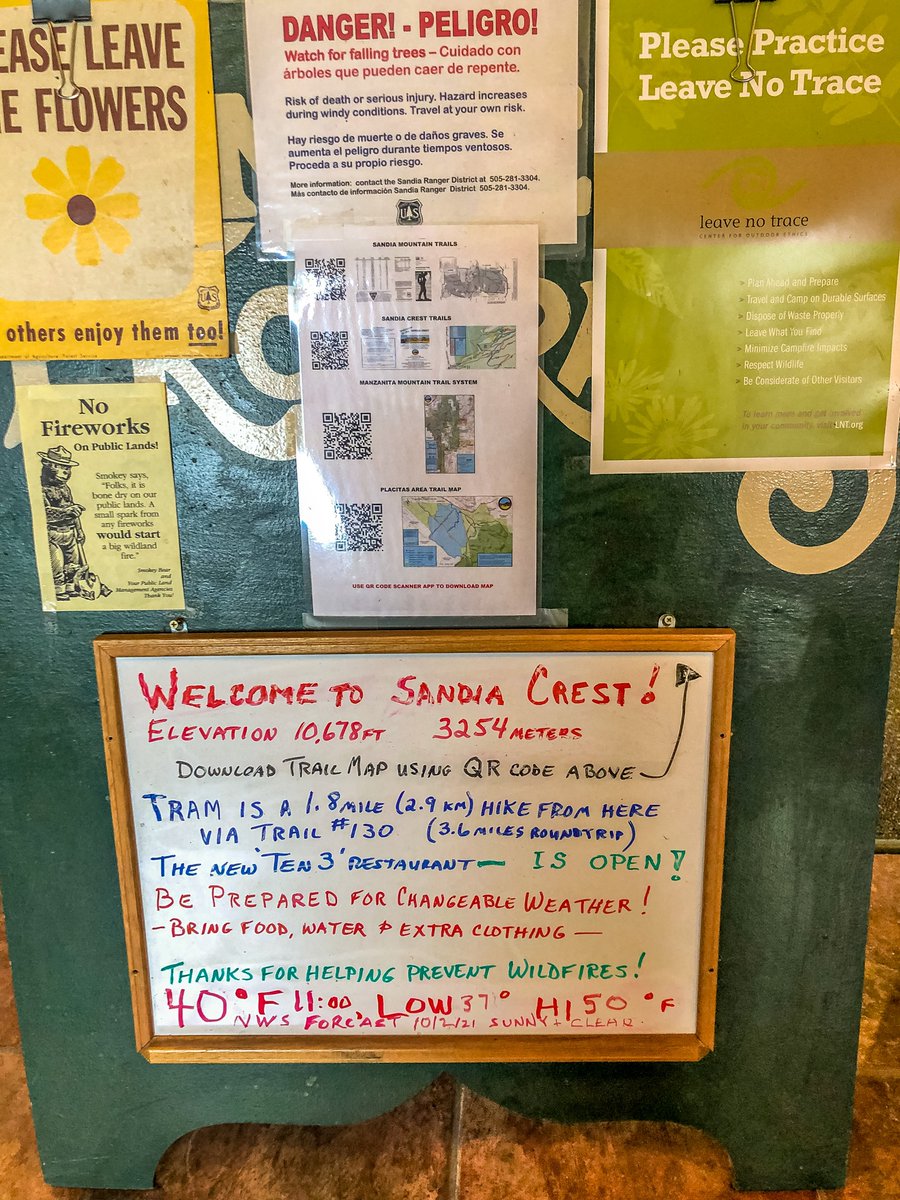 EASE LEAVE
E FLOWERS
others enjoy them too!
DANGER! - PELIGRO!
Watch for falling trees – Cuidado con
árboles que pueden caer de repente.
Risk of death or serious injury. Hazard increases
during windy conditions. Travel at your own risk.
Hay riesgo de muerte o de daños graves. Se
aumenta el peligro durante tiempos ventosos.
Proceda a su propio riesgo.
More information: contact the Sandia Ranger District at 505-281-3304.
Más contacto de información Sandia Ranger District 505-281-3304.
Please Practice
Leave No Trace
leave no trace
CENTER FOR OUTDOOR ETHICS
> Plan Ahead and Prepare
> Travel and Camp on Durable Surfaces
> Dispose of Waste Properly
> Leave What You Find
> Minimize Campfire Impacts
> Respect Wildlife
> Be Considerate of Other Visitors
To learn more and get involved
in your community, visit LNT.org
No
Fireworks
On Public Lands!
Smokey says,
"Folks, it is
bone dry on our
public lands. A
small spark from
any fireworks
would start
a big wildland
fire."
Smokey Bear
and
Your Public Land
Management Agencies
Thank You!
SANDIA MOUNTAIN TRAILS
SANDIA CREST TRAILS
MANZANITA MOUNTAIN TRAIL SYSTEM
PLACITAS AREA TRAIL MAP
USE QR CODE SCANNER APP TO DOWNLOAD MAP
WELCOME TO SANDIA CREST!
ELEVATION 10,678 FT 3254 METERS
DOWNLOAD TRAIL MAP USING QR CODE ABOVE
TRAM IS A 1.8 MILE (2.9 KM) HIKE FROM HERE
VIA TRAIL #130 (3.6 MILES ROUNDTRIP)
THE NEW 'TEN 3' RESTAURANT — IS OPEN!
BE PREPARED FOR CHANGEABLE WEATHER!
- BRING FOOD, WATER & EXTRA CLOTHING —
THANKS FOR HELPING PREVENT WILDFIRES!
40°F 11:00, LOW 37° HI 50 °F
NWS FORCAST 10/2/21 SUNNY + CLEAR